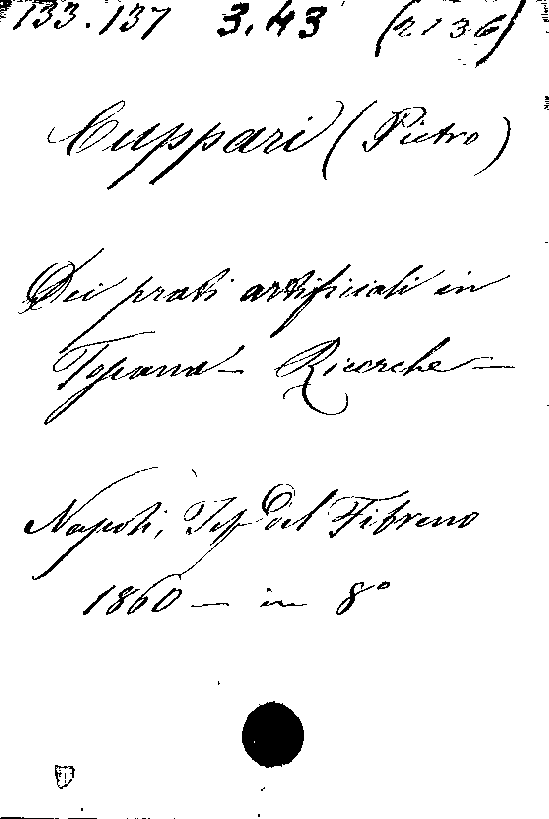 133.137 3.43 (2136)
Cuppari (Pietro)
Dei prati artificiali in
Toscana — Ricerche —
Napoli, Tip. del Fibreno
1860 — in 8º